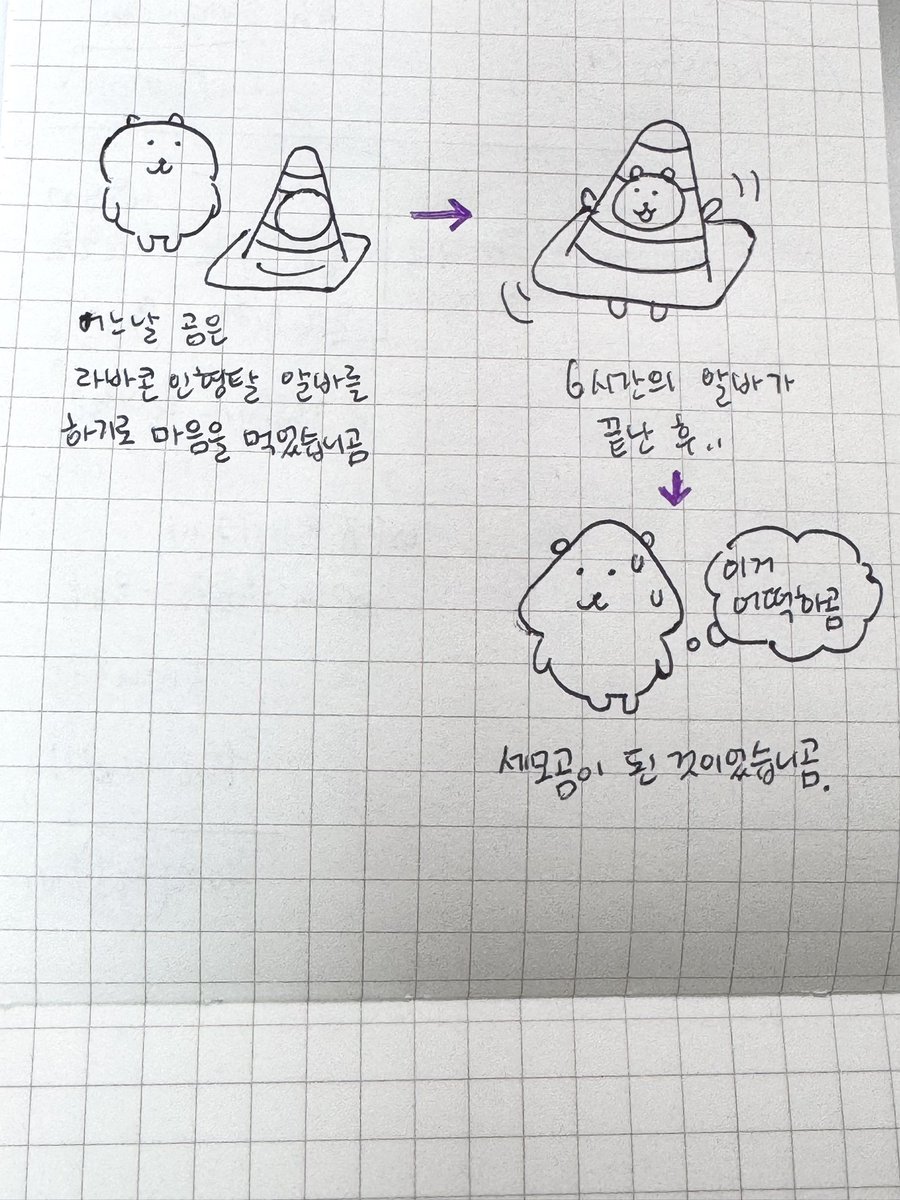 어느날 곰은
라바콘 인형탈 알바를
하기로 마음을 먹었습니곰
6시간의 알바가
끝난 후..
이거
어떡하곰
세모곰이 된 것이었습니곰.